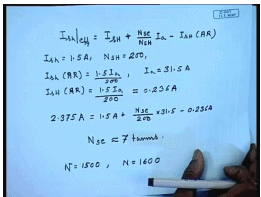 Ish|eff = IsH + Nse/NsH Ia - IsH (AR)
Ish = 1.5A, NsH = 200,
Ish (AR) = 1.5 Ia/200, Ia = 31.5A
IsH (AR) = 1.5 Ia/200 = 0.236A
2.375A = 1.5A + Nse/200 × 31.5 - 0.236A
Nse ≈ 7 turns.
N = 1500 , N = 1600